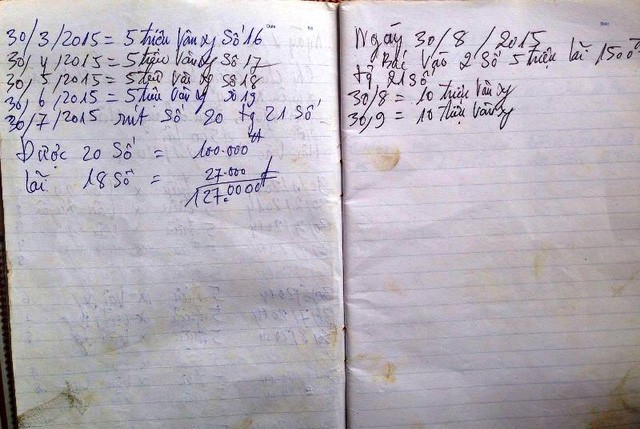 30/3/2015 = 5 triệu Vân xy Số 16
30/4/2015 = 5 triệu Vân xy Số 17
30/5/2015 = 5 triệu Vân xy Số 18
30/6/2015 = 5 triệu Vân xy Số 19
30/7/2015 rút Số 20 tg 21 Số
Được 20 Số = 100.000
lãi 18 Số = 27.000đ
127.0000đ
Ngày 30/8/2015
Bác Vào 2 Số 5 triệu lãi 1500đ
tg 21 Số
30/8 = 10 triệu Vân xy
30/9 = 10 triệu Vân xy